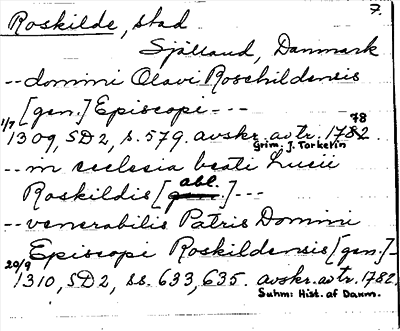 Roskilde, stad 7.
Själland, Danmark
-- domini Olavi Roschildensis
[gen.] Episcopi ---
1/7 1309, SD 2, s. 579. avskr. av tr. 1782. 78
Grim. J. Torkelin
-- in ecclesia beati Lucii
abl.
Roskildis [gen.] ---
-- venerabilis Patris Domini
Episcopi Roskildensis [gen.] -
20/9 1310, SD 2, ss. 633, 635. avskr. av tr. 1782.
Suhm: Hist. af Danm.